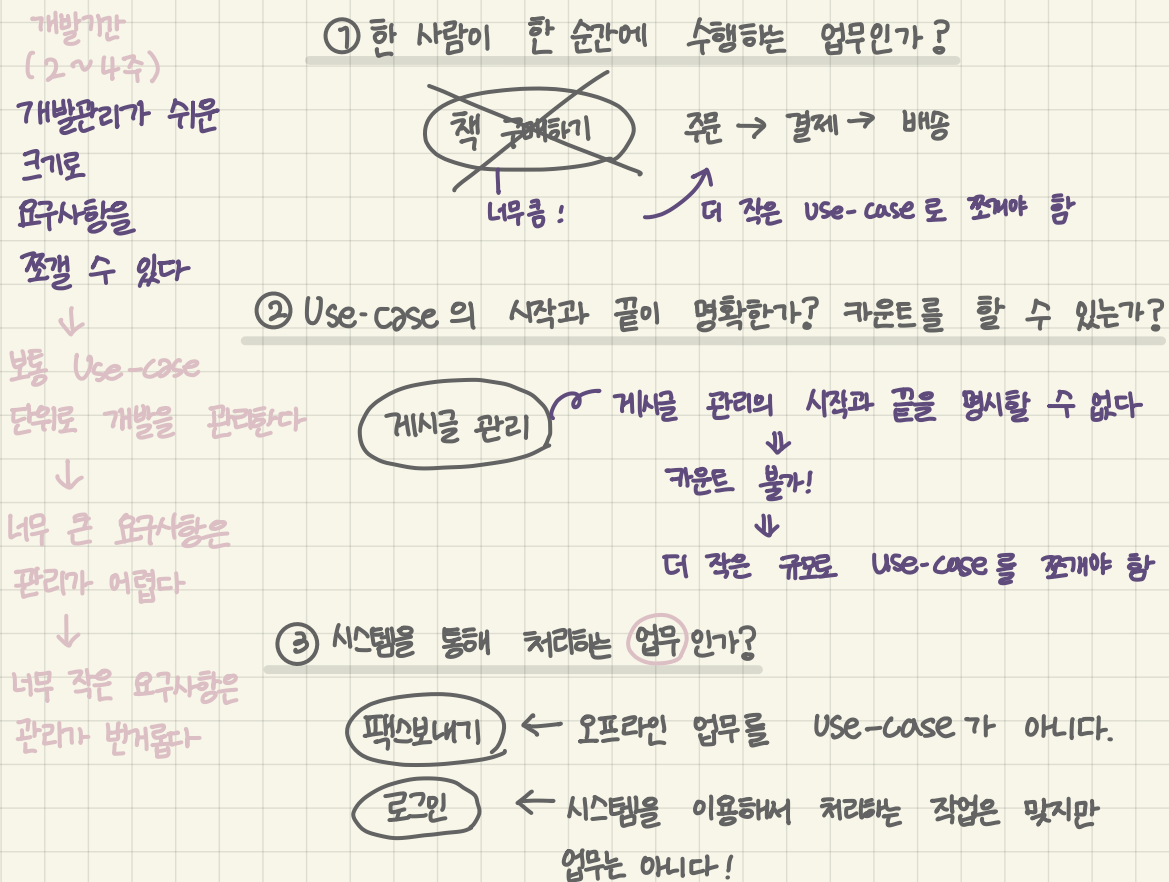 개발기간
(2~4주)
개발관리가 쉬운
크기로
요구사항을
쪼갤 수 있다
↓
보통 Use-case
단위로 개발을 관리한다
↓
너무 큰 요구사항은
관리가 어렵다
↓
너무 작은 요구사항은
관리가 번거롭다
① 한 사람이 한 순간에 수행하는 업무인가?
책 구매하기
주문 → 결제 → 배송
너무큼!
더 작은 use-case로 쪼개야 함
② Use-case의 시작과 끝이 명확한가? 카운트를 할 수 있는가?
게시글 관리
게시글 관리의 시작과 끝을 명시할 수 없다
⇓
카운트 불가!
⇓
더 작은 규모로 Use-case를 쪼개야 함
③ 시스템을 통해 처리하는 업무인가?
팩스보내기 ← 오프라인 업무를 Use-case가 아니다.
로그인 ← 시스템을 이용해서 처리하는 작업은 맞지만
업무는 아니다!